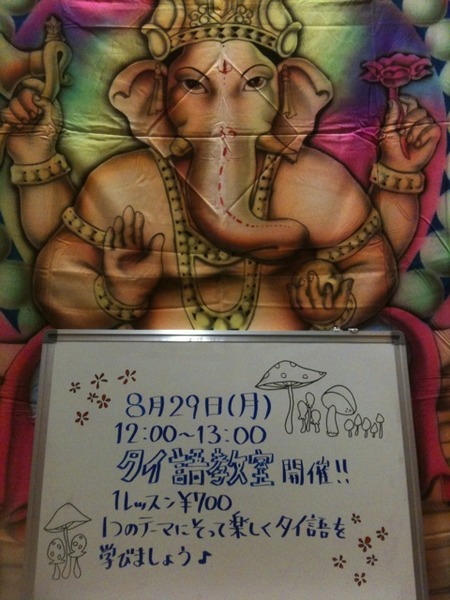 8月29日(月)
12:00~13:00
タイ語教室 開催!!
1レッスン ¥700
1つのテーマにそって楽しくタイ語を
学びましょう♪